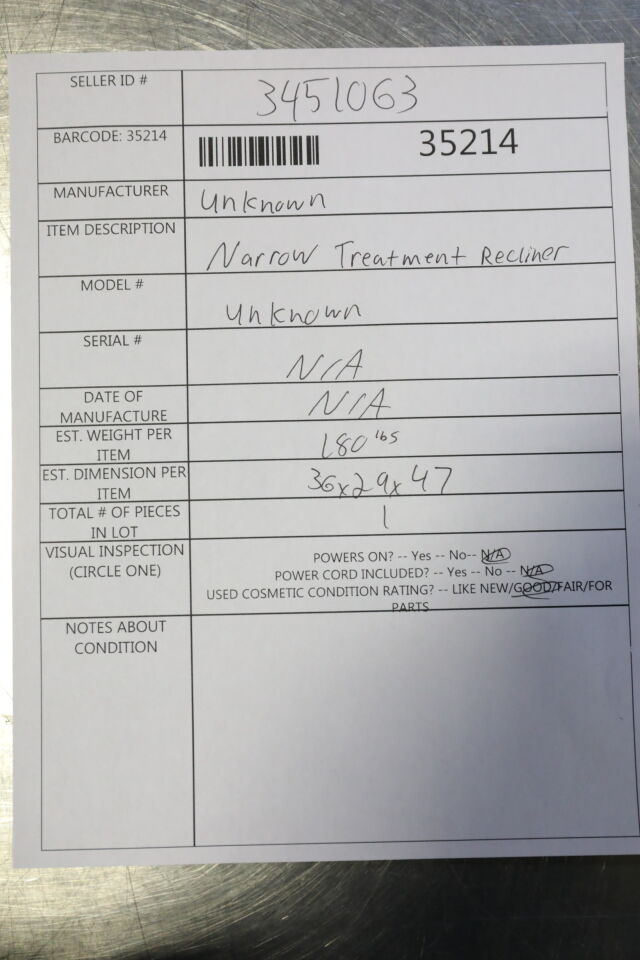 SELLER ID # 3451063
BARCODE: 35214 35214
MANUFACTURER Unknown
ITEM DESCRIPTION Narrow Treatment Recliner
MODEL # Unknown
SERIAL # N/A
DATE OF
MANUFACTURE N/A
EST. WEIGHT PER
ITEM 180 lbs
EST. DIMENSION PER
ITEM 36x29x47
TOTAL # OF PIECES
IN LOT 1
VISUAL INSPECTION
(CIRCLE ONE)
POWERS ON? -- Yes -- No-- N/A
POWER CORD INCLUDED? -- Yes -- No -- N/A
USED COSMETIC CONDITION RATING? -- LIKE NEW/GOOD/FAIR/FOR
PARTS
NOTES ABOUT
CONDITION